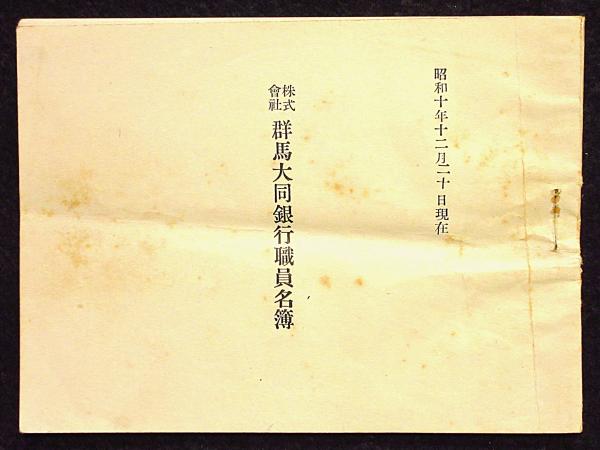 昭和十年十二月二十日現在
株式會社 群馬大同銀行職員名簿